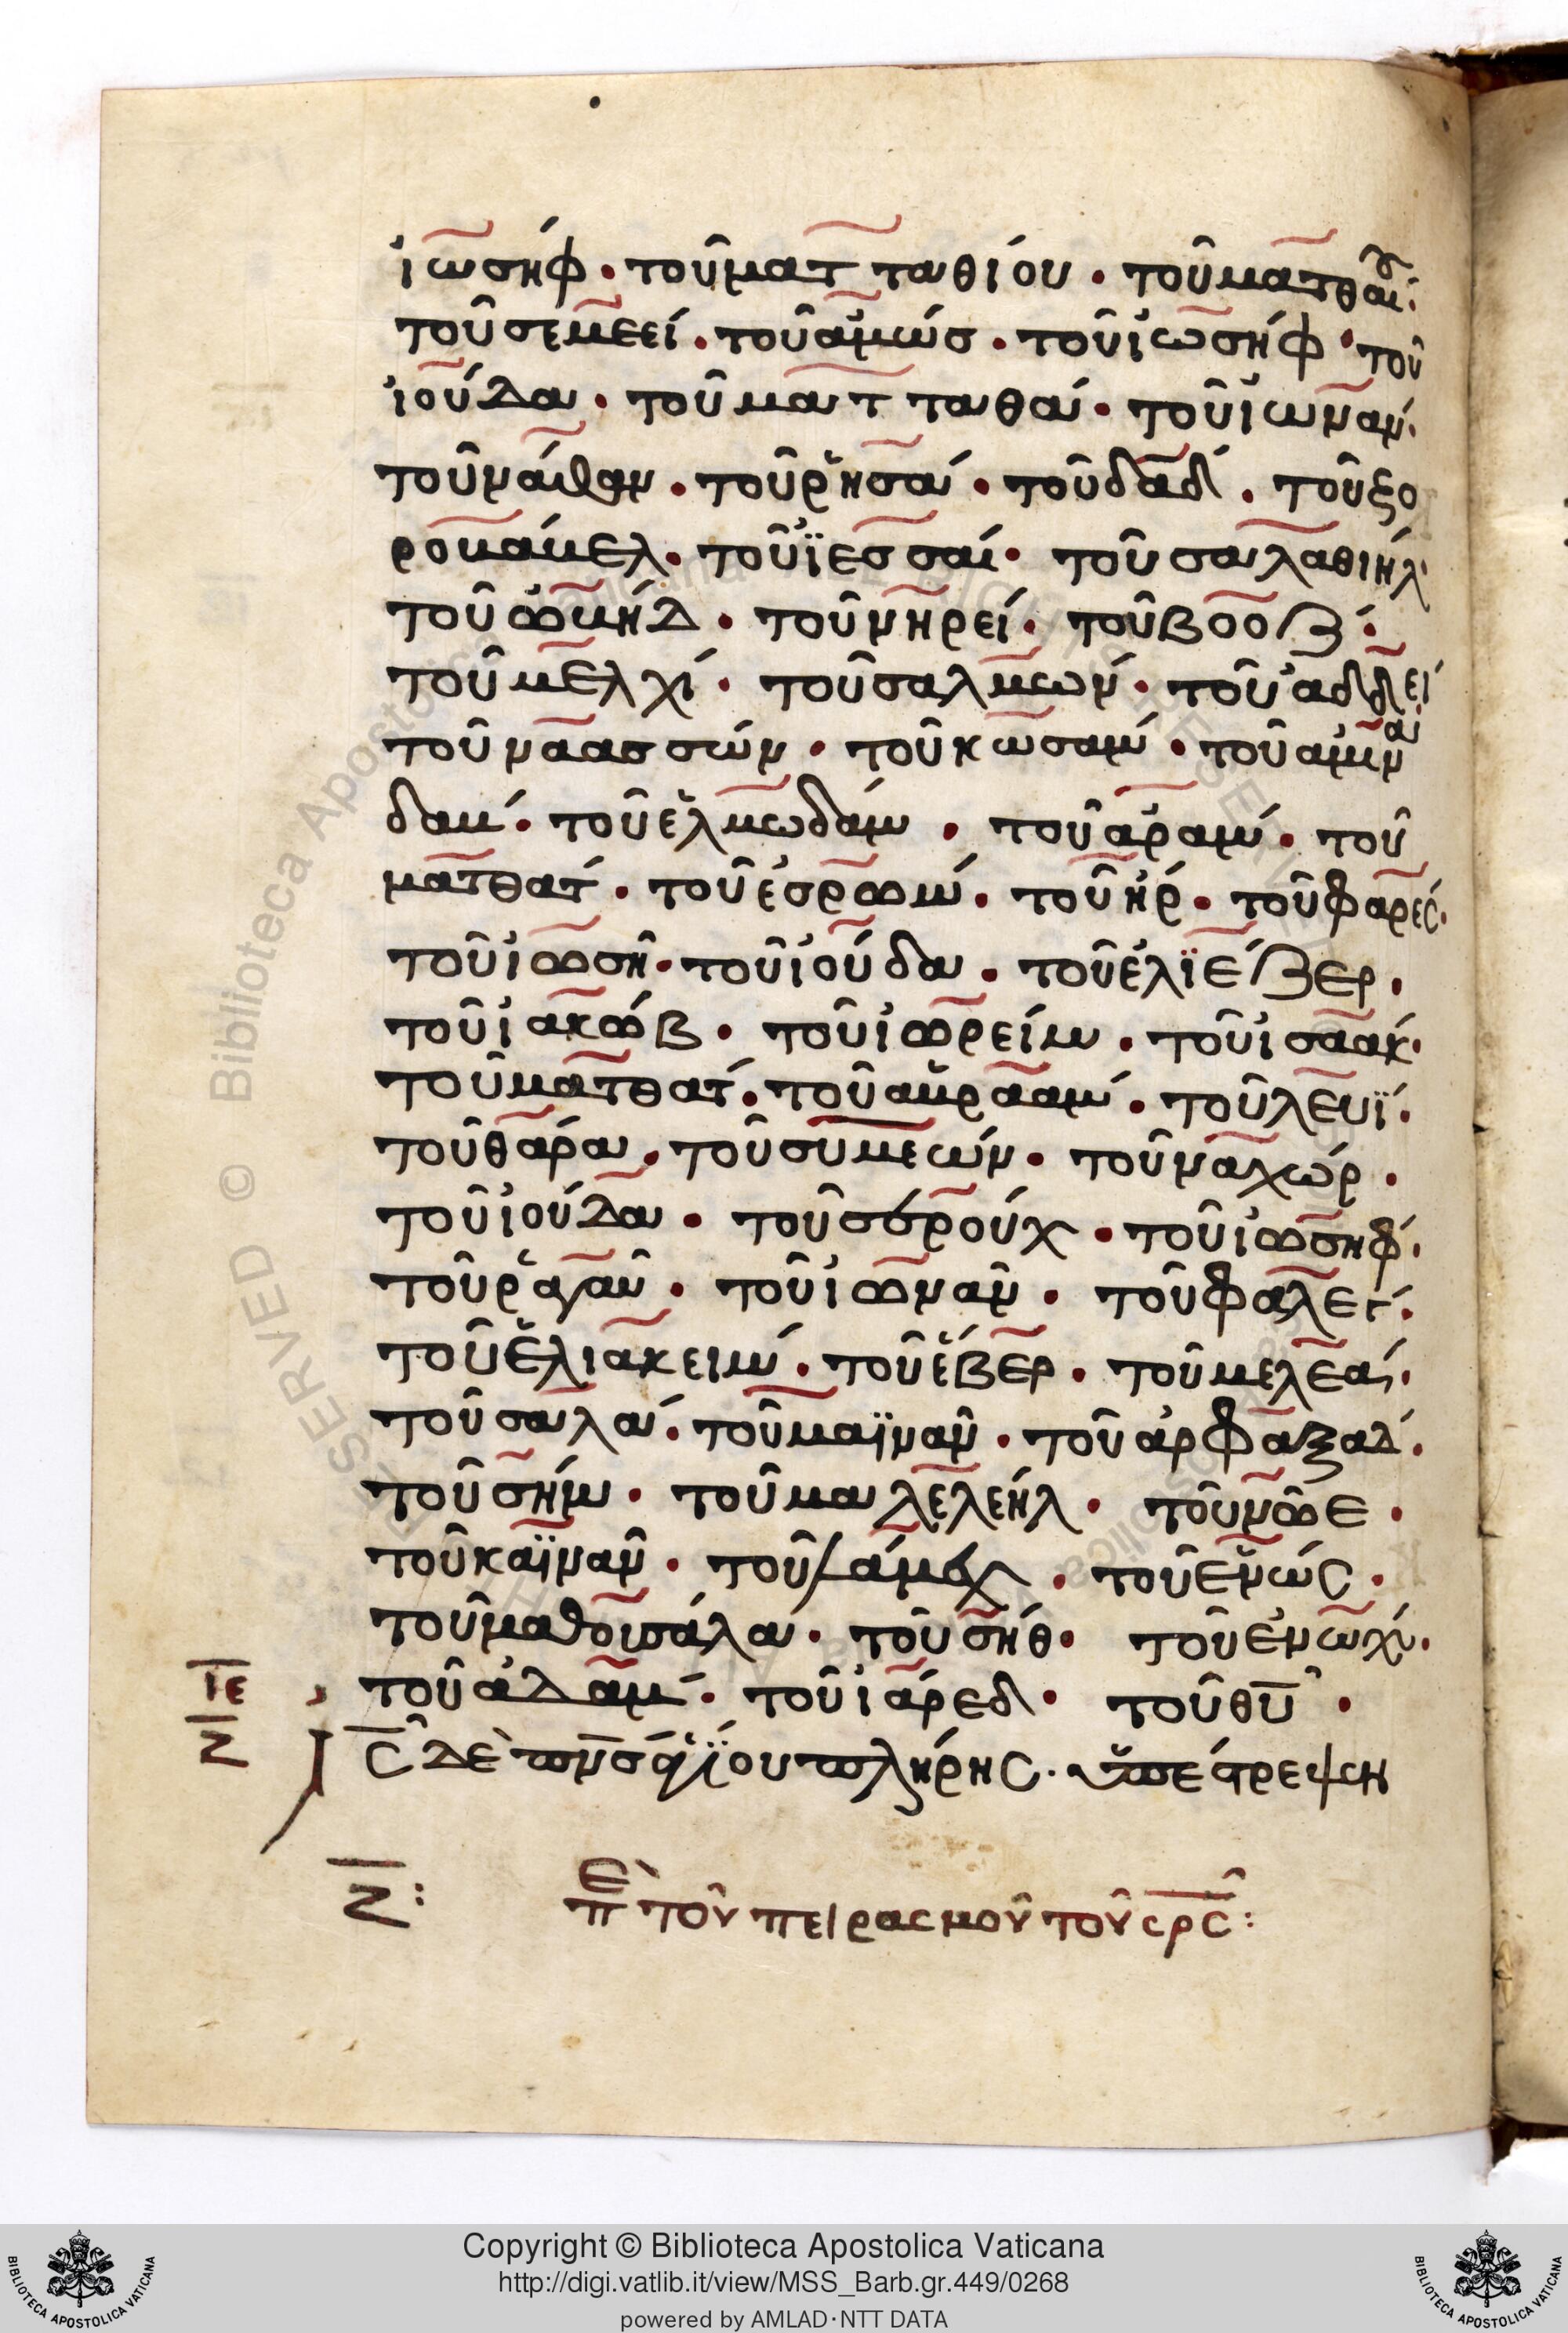 ἰωσήφ· τοῦ ματταθίου· τοῦ ματθαί:
τοῦ σεμεεί· τοῦ ἀμώσ· τοῦ ἰωσήφ· τοῦ
ἰούδα· τοῦ ματταθαί· τοῦ ἰωναν·
τοῦ νάθαν· τοῦ ῥησαί· τοῦ δαδί· τοῦ ζο
ρομάμελ· τοῦ ἰεσσαί· τοῦ σαλαθιήλ·
τοῦ ὠμήδ· τοῦ νηρεί· τοῦ βοόζ·
τοῦ μελχί· τοῦ σαλμών· τοῦ ἀδδεί
τοῦ ναασσών· τοῦ κωσάμ· τοῦ ἀμιν
δαμ· τοῦ ἐλμωδάμ· τοῦ ἀράμ· τοῦ
ματθατ· τοῦ ἐσρώμ· τοῦ ἠρ· τοῦ φαρές·
τοῦ ἰωσῆ· τοῦ ἰούδα· τοῦ ἐλϊέζερ·
τοῦ ἰακώβ· τοῦ ἰωρείμ· τοῦ ἰσαάκ·
τοῦ ματθατ· τοῦ ἀβραάμ· τοῦ λευϊ·
τοῦ θάρα· τοῦ συμεών· τοῦ ναχώρ·
τοῦ ἰούδα· τοῦ σερούχ· τοῦ ἰωσήφ·
τοῦ ῥαγαῦ· τοῦ ἰωνᾶν· τοῦ φάλεγ·
τοῦ ἐλιακείμ· τοῦ ἔβερ· τοῦ μελεά·
τοῦ σαλά· τοῦ μαϊνᾶν· τοῦ ἀρφαξαδ·
τοῦ σήμ· τοῦ μαλελεήλ· τοῦ νῶε·
τοῦ καϊνᾶν· τοῦ λάμεχ· τοῦ ἐνώς·
τοῦ μαθουσάλα· τοῦ σήθ· τοῦ ἐνώχ·
ιε τοῦ ἀδάμ· τοῦ ἰάρεδ· τοῦ θυ·
Ζ ις δὲ πνσ ἁγίου πλήρης· ὑπέστρεψεν
Ζ: Πε τοῦ πειρασμοῦ τοῦ σρς:
© Biblioteca Apostolica Vaticana
Copyright © Biblioteca Apostolica Vaticana
http://digi.vatlib.it/view/MSS_Barb.gr.449/0268
powered by AMLAD·NTT DATA
BIBLIOTECA APOSTOLICA VATICANA
BIBLIOTECA APOSTOLICA VATICANA